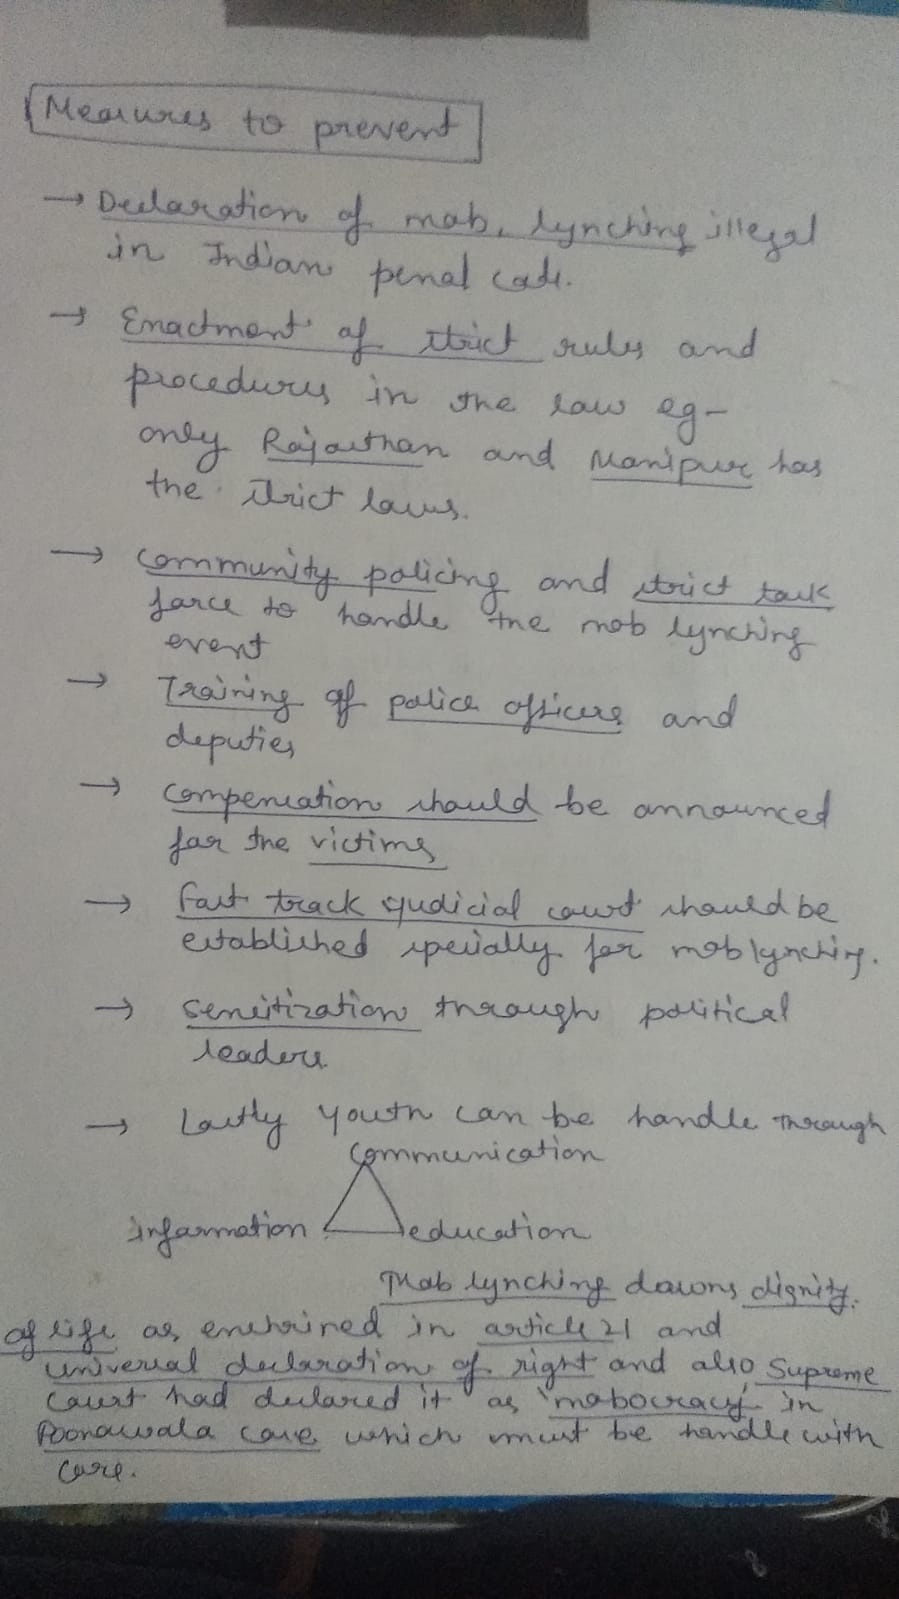 Measures to prevent
→ Declaration of mob, lynching illegal
in Indian penal code.
→ Enactment of strict rules and
procedures in the law eg-
only Rajasthan and Manipur has
the strict laws.
→ Community policing and strict task
force to handle the mob lynching
event
→ Training of police officers and
deputies
→ Compensation should be announced
for the victims
→ Fast track judicial court should be
established specially for mob lynching.
→ Sensitization through political
leaders.
→ Lastly youth can be handle through
Communication
information education
Mob lynching downs dignity.
of life as enshrined in article 21 and
universal declaration of right and also Supreme
Court had declared it as 'mobocracy' in
Poonawala case which must be handle with
care.